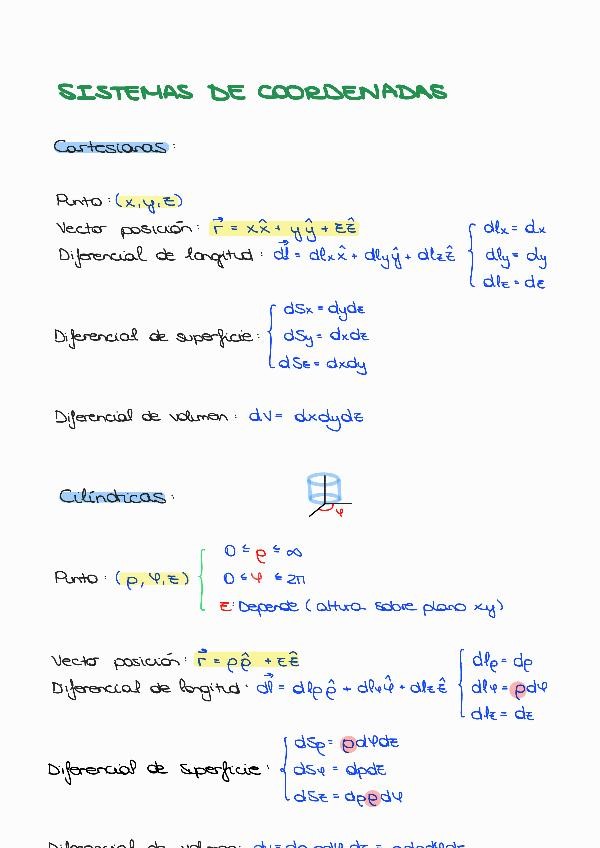 SISTEMAS DE COORDENADAS
Cartesianas:
Punto: (x,y,z)
Vector posición: r⃗ = xx̂ + yŷ + zẑ
Diferencial de longitud: dl⃗ = dlxx̂ + dlyŷ + dlzẑ { dlx = dx
dly = dy
dlz = dz
dSx = dydz
Diferencial de superficie: { dSy = dxdz
dSz = dxdy
Diferencial de volumen: dV = dxdydz
Cilíndricas:
φ
0 ≤ ρ ≤ ∞
Punto: (ρ, φ, z) { 0 ≤ φ ≤ 2π
z: Depende (altura sobre plano xy)
Vector posición: r⃗ = ρρ̂ + zẑ
Diferencial de longitud: dl⃗ = dlρρ̂ + dlφφ̂ + dlzẑ { dlρ = dρ
dlφ = ρdφ
dlz = dz
dSρ = ρdφdz
Diferencial de superficie: { dSφ = dρdz
dSz = dρρdφ